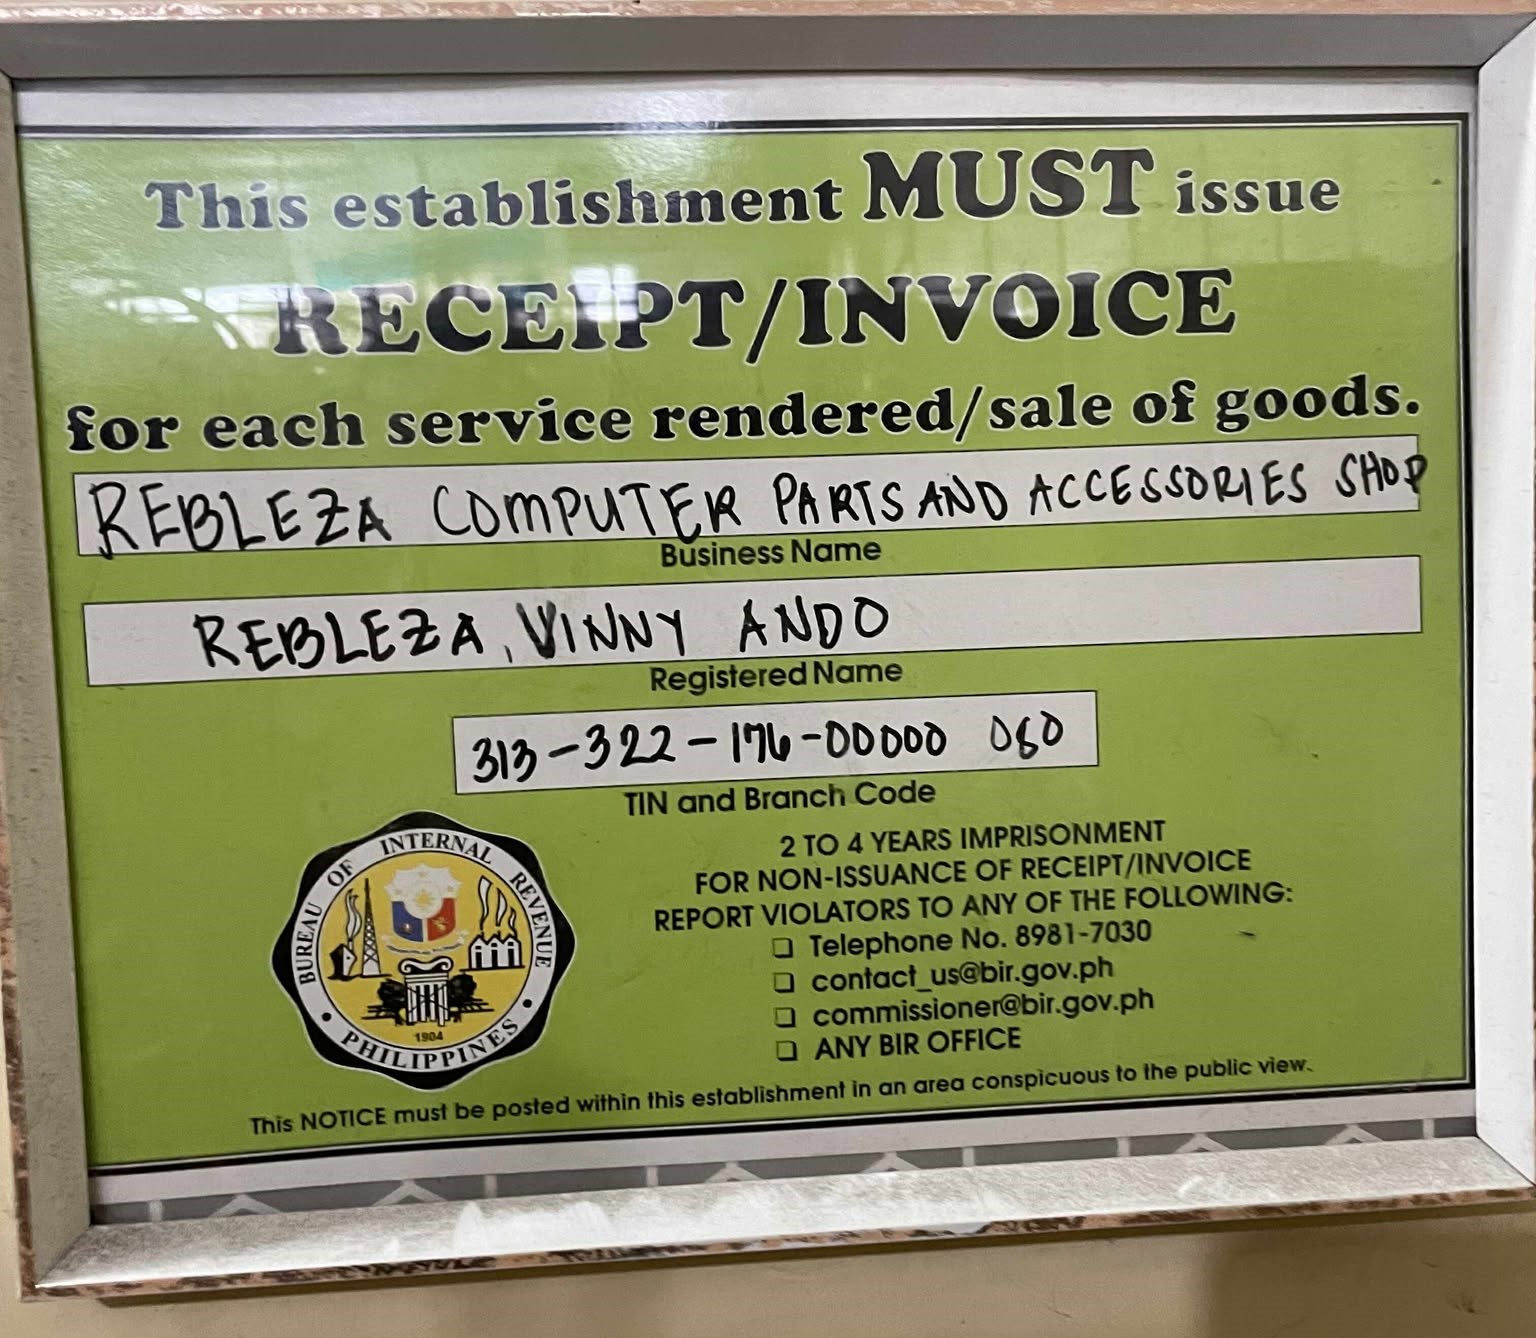 This establishment MUST issue
RECEIPT/INVOICE
for each service rendered/sale of goods.
REBLEZA COMPUTER PARTS AND ACCESSORIES SHOP
Business Name
REBLEZA, VINNY ANDO
Registered Name
313-322-176-00000 080
TIN and Branch Code
2 TO 4 YEARS IMPRISONMENT
FOR NON-ISSUANCE OF RECEIPT/INVOICE
REPORT VIOLATORS TO ANY OF THE FOLLOWING:
❏ Telephone No. 8981-7030
❏ contact_us@bir.gov.ph
❏ commissioner@bir.gov.ph
❏ ANY BIR OFFICE
BUREAU OF INTERNAL REVENUE
1904
• PHILIPPINES •
This NOTICE must be posted within this establishment in an area conspicuous to the public view.